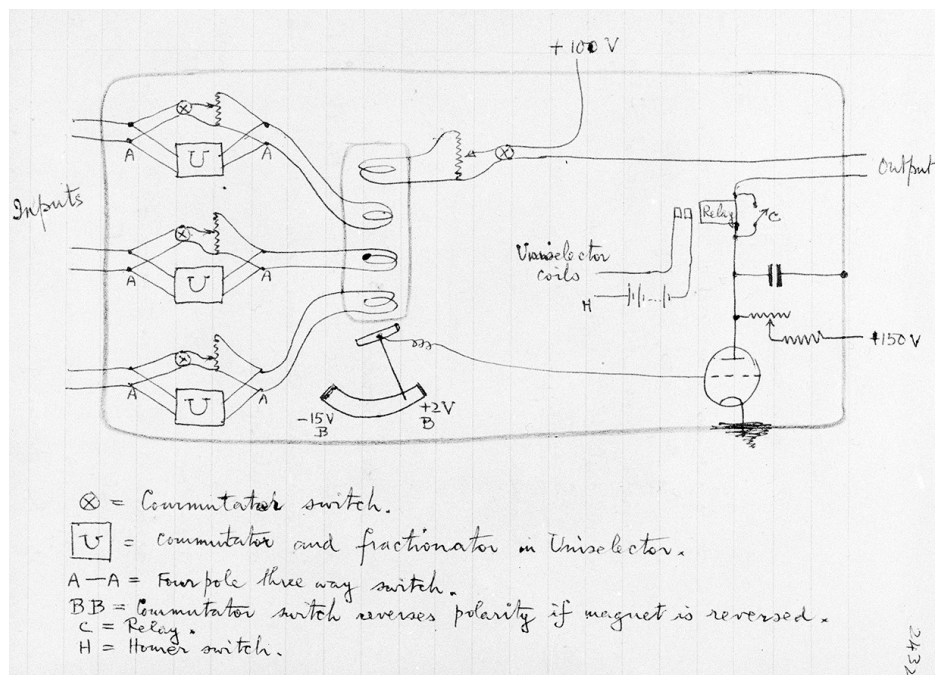 +100V
A
U
A
Output
Inputs
Relay
C
A
U
A
Uniselector
coils
H
+150V
A
U
A
-15V
B
+2V
B
⊗ = Commutator switch.
U = commutator and fractionator in Uniselector.
A—A = Four pole three way switch.
BB = Commutator switch reverses polarity if magnet is reversed.
C = Relay.
H = Homer switch.
2432